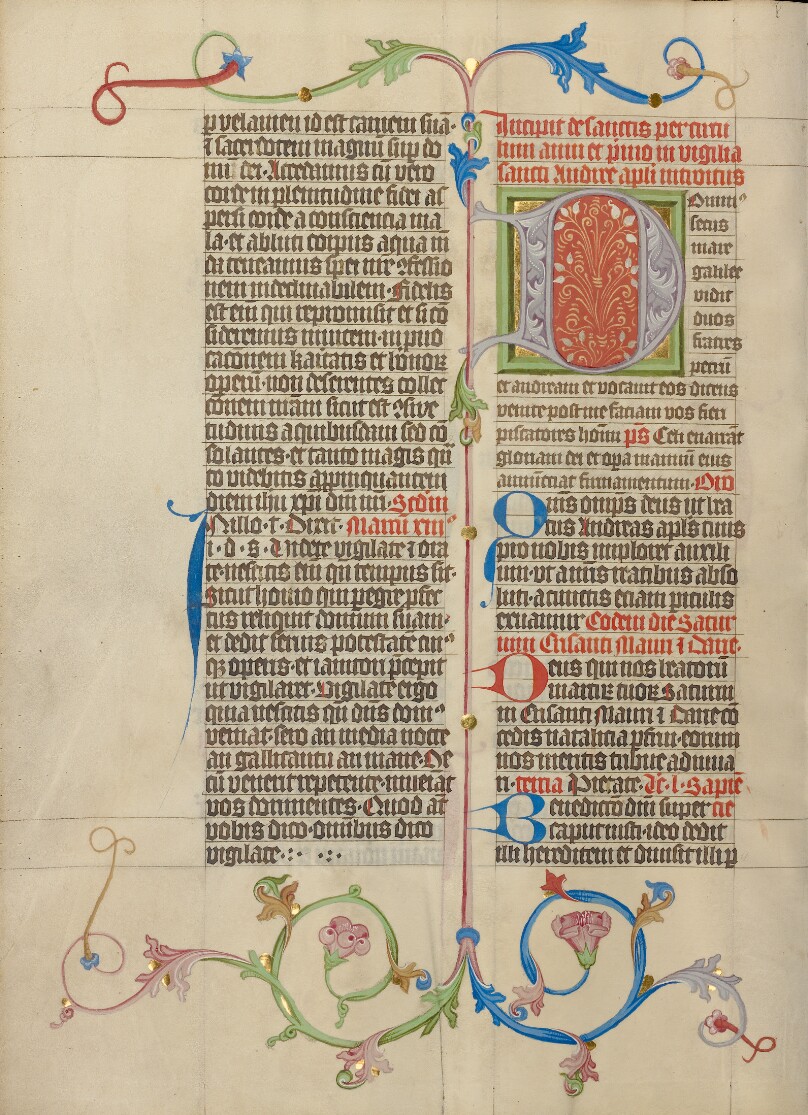 p velamen id est carnem suā·
⁊ sacerdotem magnū sup do
mū dei · Accedamus cū vero
corde in plenitudine fidei as
persi corde a consciencia ma
la · et abluti corpus aqua mū
da teneamus spei nre ꝯfessio
nem indeclinabilem · Fidelis
est em qui repromisit et si cō
sideremus invicem · in puo
cacionem karitatis et bonoꝝ
operū · non deserentes collec
cōnem nrām sicut est ꝯswe
tudinis a quibusdam sed cō
solantes · et tanto magis qn̄
to videbitis appinquantem
diem ihu xpi dni nri · Scdm
Nillo · t · Dixit · Marcū xiii
i · d · s · Videte vigilate ⁊ ora
te · nescitis em qn̄ tempus sit ·
Sicut homo qui pegre pfec
tus reliquit domum suam ·
et dedit servis potestatē cui
qꝫ operis · et ianitori pcepit
ut vigilaret · Vigilate ergo
quia nescitis qn̄ dn̄s dom
veniat · sero an media nocte
an gallicantu an mane · Ne
cū venerit repente · inveiat
vos dormientes · Quod at
vobis dico · omībus dico
vigilate · : · · : ·
Incipit de sanctis per circu
lum anni et p̄mo in vigilia
sancti Andree apli introitus
Domin
secus
mare
galilee
vidit
duos
fratres
petrū
et andream et vocavit eos dicens
venite post me faciam vos fieri
piscatores hoīm ps Celi enarrāt
gloriam dei et opa manuū eius
annūciat firmamentum · Oro
Quis omps deus ut bea
tus Andreas apls tuus
pro nobis imploret auxili
um · ut a nr̄is reatibus abso
luti · a cunctis eciam piculis
eruamur Eodem die Satur
nini Crisanti Mauri ⁊ Darie ·
Deus qui nos beatorū
martiꝝ tuoꝝ Saturni
ni Crisanti Mauri ⁊ Darie cō
cedis natalicia pfrui · eorum
nos meritis tribue adiuva
ri · tercia Pietate · Lc · l · Sapiē
Benedictō dni super cie
caput iusti · ideo dedit
illi hereditem et divisit illi p